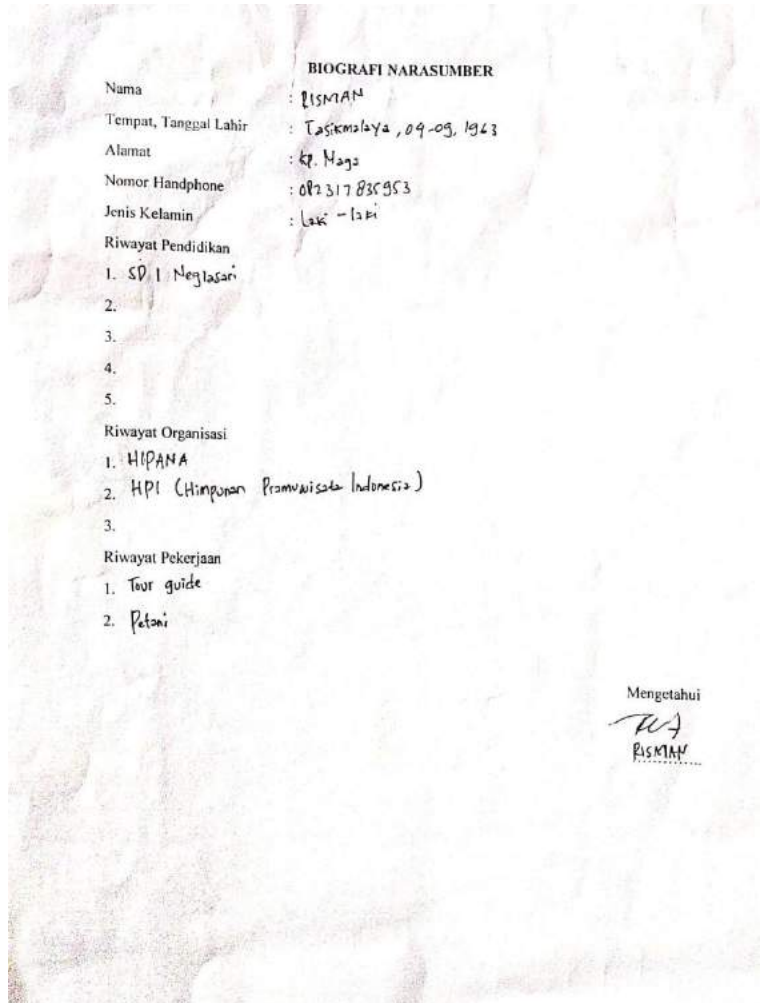 BIOGRAFI NARASUMBER
Nama : RISMAN
Tempat, Tanggal Lahir : Tasikmalaya, 04-09, 1963
Alamat : kp. Naga
Nomor Handphone : 082317835953
Jenis Kelamin : Laki-laki
Riwayat Pendidikan
1. SD 1 Neglasari
2.
3.
4.
5.
Riwayat Organisasi
1. HIPANA
2. HPI (Himpunan Pramuwisata Indonesia)
3.
Riwayat Pekerjaan
1. Tour guide
2. Petani
Mengetahui
RISMAN